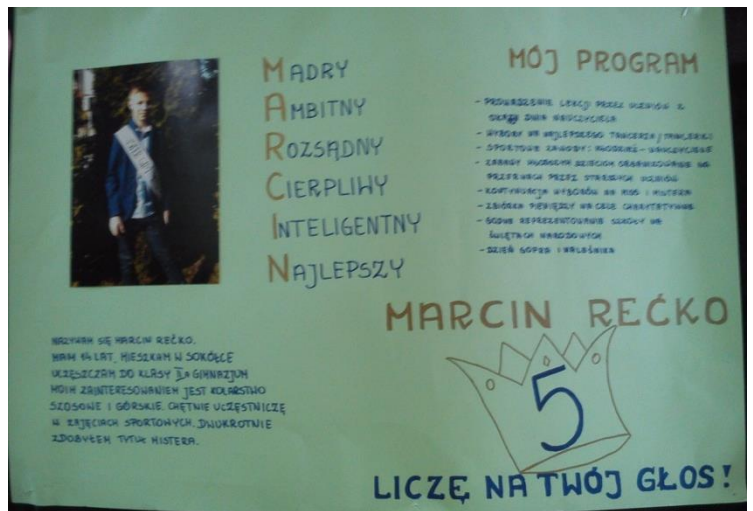 MĄDRY
AMBITNY
ROZSĄDNY
CIERPLIWY
INTELIGENTNY
NAJLEPSZY
MÓJ PROGRAM
- PROWADZENIE LEKCJI PRZEZ UCZNIÓW Z
OKAZJI DNIA NAUCZYCIELA
- WYBORY NA NAJLEPSZEGO TANCERZA / TANCERKI
- SPORTOWE ZAWODY: MŁODZIEŻ - NAUCZYCIELE
- ZABAWY MŁODSZYM DZIECIOM ORGANIZOWANE NA
PRZERWACH PRZEZ STARSZYCH UCZNIÓW
- KONTYNUACJA WYBORÓW NA MISS I MISTERA
- ZBIÓRKA PIENIĘDZY NA CELE CHARYTATYWNE
- GODNE REPREZENTOWANIE SZKOŁY NA
ŚWIĘTACH NARODOWYCH
- DZIEŃ GOFRA I NALEŚNIKA
MARCIN REĆKO
5
LICZĘ NA TWÓJ GŁOS!
NAZYWAM SIĘ MARCIN REĆKO.
MAM 14 LAT, MIESZKAM W SOKÓŁCE
UCZĘSZCZAM DO KLASY IIa GIMNAZJUM
MOIM ZAINTERESOWANIEM JEST KOLARSTWO
SZOSOWE I GÓRSKIE. CHĘTNIE UCZESTNICZĘ
W ZAJĘCIACH SPORTOWYCH. DWUKROTNIE
ZDOBYŁEM TYTUŁ MISTERA.